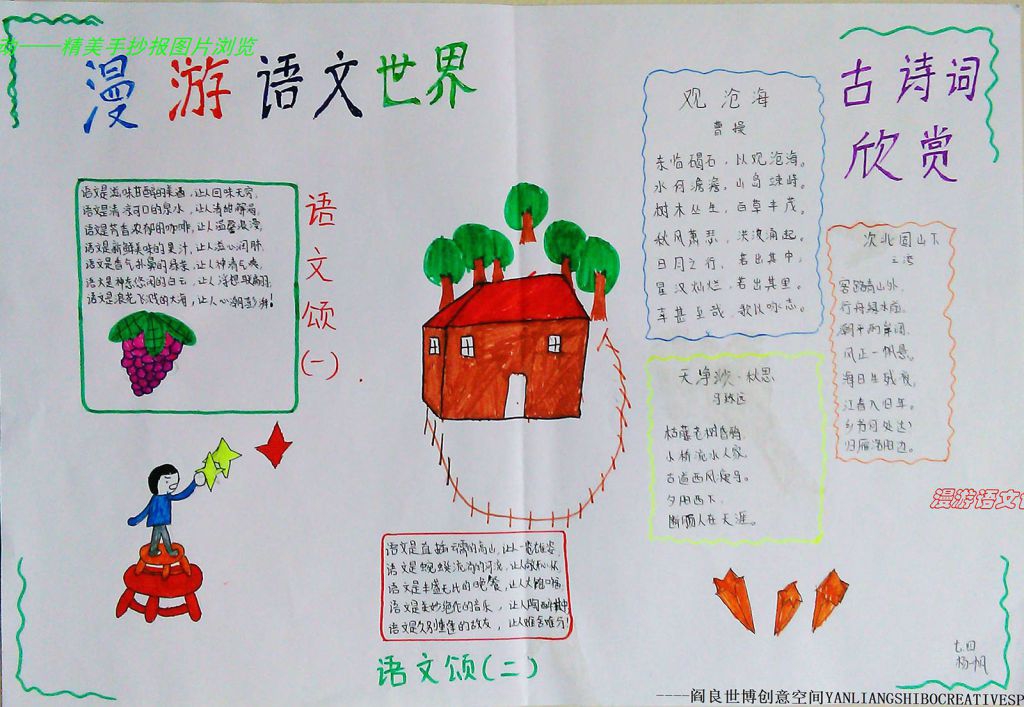 动——精美手抄报图片浏览
漫游语文世界
语文是滋味甘醇的美酒，让人回味无穷，
语文是清凉可口的泉水，让人清甜解渴，
语文是芳香浓郁的咖啡，让人温馨浪漫，
语文是新鲜美味的果汁，让人沁心润肺，
语文是香气扑鼻的绿茶，让人神清气爽，
语文是神态悠闲的白云，让人浮想联翩，
语文是浪花飞溅的大海，让人心潮澎湃！
语文颂(一)
语文是直插云霄的高山，让人一睹雄姿，
语文是蜿蜒流淌的河流，让人
语文是丰盛无比的晚餐，让人大饱口福，
语文是美妙绝伦的音乐，让人陶醉其中，
语文是久别重逢的故友，让人难舍难分！
语文颂(二)
观沧海
曹操
东临碣石，以观沧海。
水何澹澹，山岛竦峙。
树木丛生，百草丰茂。
秋风萧瑟，洪波涌起。
日月之行，若出其中，
星汉灿烂，若出其里。
幸甚至哉，歌以咏志。
天净沙·秋思
马致远
枯藤老树昏鸦，
小桥流水人家，
古道西风瘦马。
夕阳西下，
断肠人在天涯。
古诗词
欣赏
次北固山下
王湾
客路青山外，
行舟绿水前。
潮平两岸阔，
风正一帆悬。
海日生残夜，
江春入旧年。
乡书何处达？
归雁洛阳边。
漫游语文
七四
杨帆
----阎良世博创意空间YANLIANGSHIBOCREATIVESP